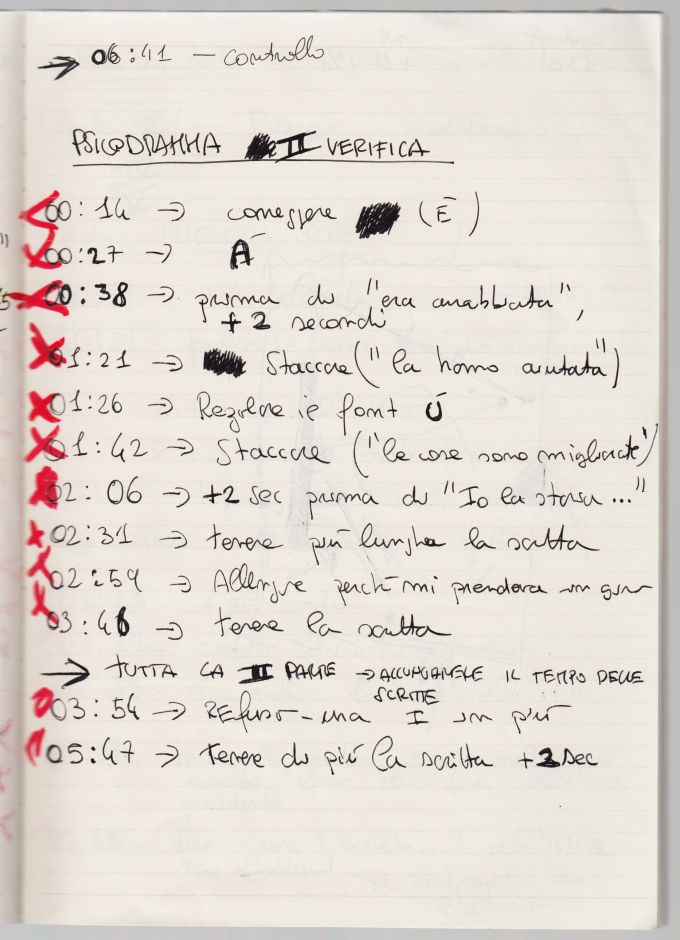 → 06:41 – controllo
PSICODRAMMA II VERIFICA
00:14 → correggere (È)
00:27 → À
00:38 → prima di "era arrabbiata",
+ 2 secondi
01:21 → Staccare ("la hanno aiutata")
01:26 → Regolare il font Ú
01:42 → Staccare ("le cose sono migliorate")
02:06 → +2 sec prima di "Io la stava ..."
02:31 → tenere più lunga la scritta
02:59 → perché mi prendeva in giro
03:46 → tenere la scritta
→ TUTTA LA II PARTE → ALLUNGARE IL TEMPO DELLE
SCRITTE
03:54 → REfuso – una I in più
05:47 → tenere di più la scritta +2sec